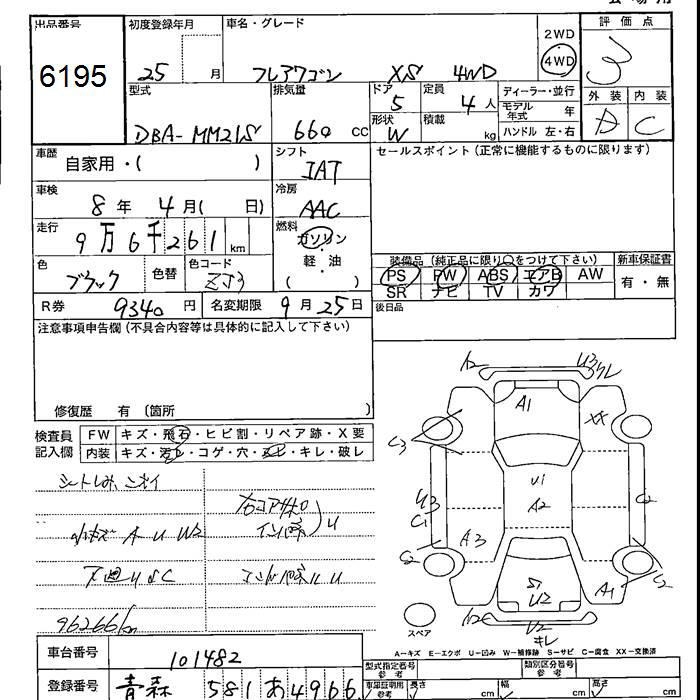 出品番号
6195
初度登録年月
25 月
車名・グレード
フレアワゴン XS 4WD
2WD
4WD
評価点
3
外装 内装
C
型式
DBA-MM21S
排気量
660 cc
ドア
5
形状
W
定員
4 人
積載
kg
ディーラー・並行
モデル年式 年
ハンドル 左・右
車歴
自家用・( )
シフト
IAT
車検
8 年 4 月( 日)
冷房
AAC
走行
9万6千261 km
燃料
ガソリン
軽・油
( )
色
ブラック
色替
色コード
ZJ3
R券
9340 円
名変期限
9 月 25 日
セールスポイント(正常に機能するものに限ります)
装備品(純正品に限り○をつけて下さい)
PS PW ABS エアB AW
SR ナビ TV カワ
新車保証書
有・無
後日品
注意事項申告欄(不具合内容等は具体的に記入して下さい)
修復歴 有 〔箇所 〕
検査員記入欄
FW キズ・飛石・ヒビ割・リペア跡・X要
内装 キズ・汚レ・コゲ・穴・スレ・キレ・破レ
シートしみ、ニオイ
小キズ A U W2
下廻りSC
96266km
A2
U3
A1
XX
C3
U1
A2
U3
C1
C2
A3
C2
S1
U2
A1
S2
U2
キレ
スペア
A―キズ E―エクボ U―凹み W―補修跡 S―サビ C―腐食 XX―交換済
車台番号
101482
登録番号
青森 581 あ 4966
型式指定番号
参考
類別区分番号
参考
車庫証明用
参考
長さ cm
幅 cm
高さ cm